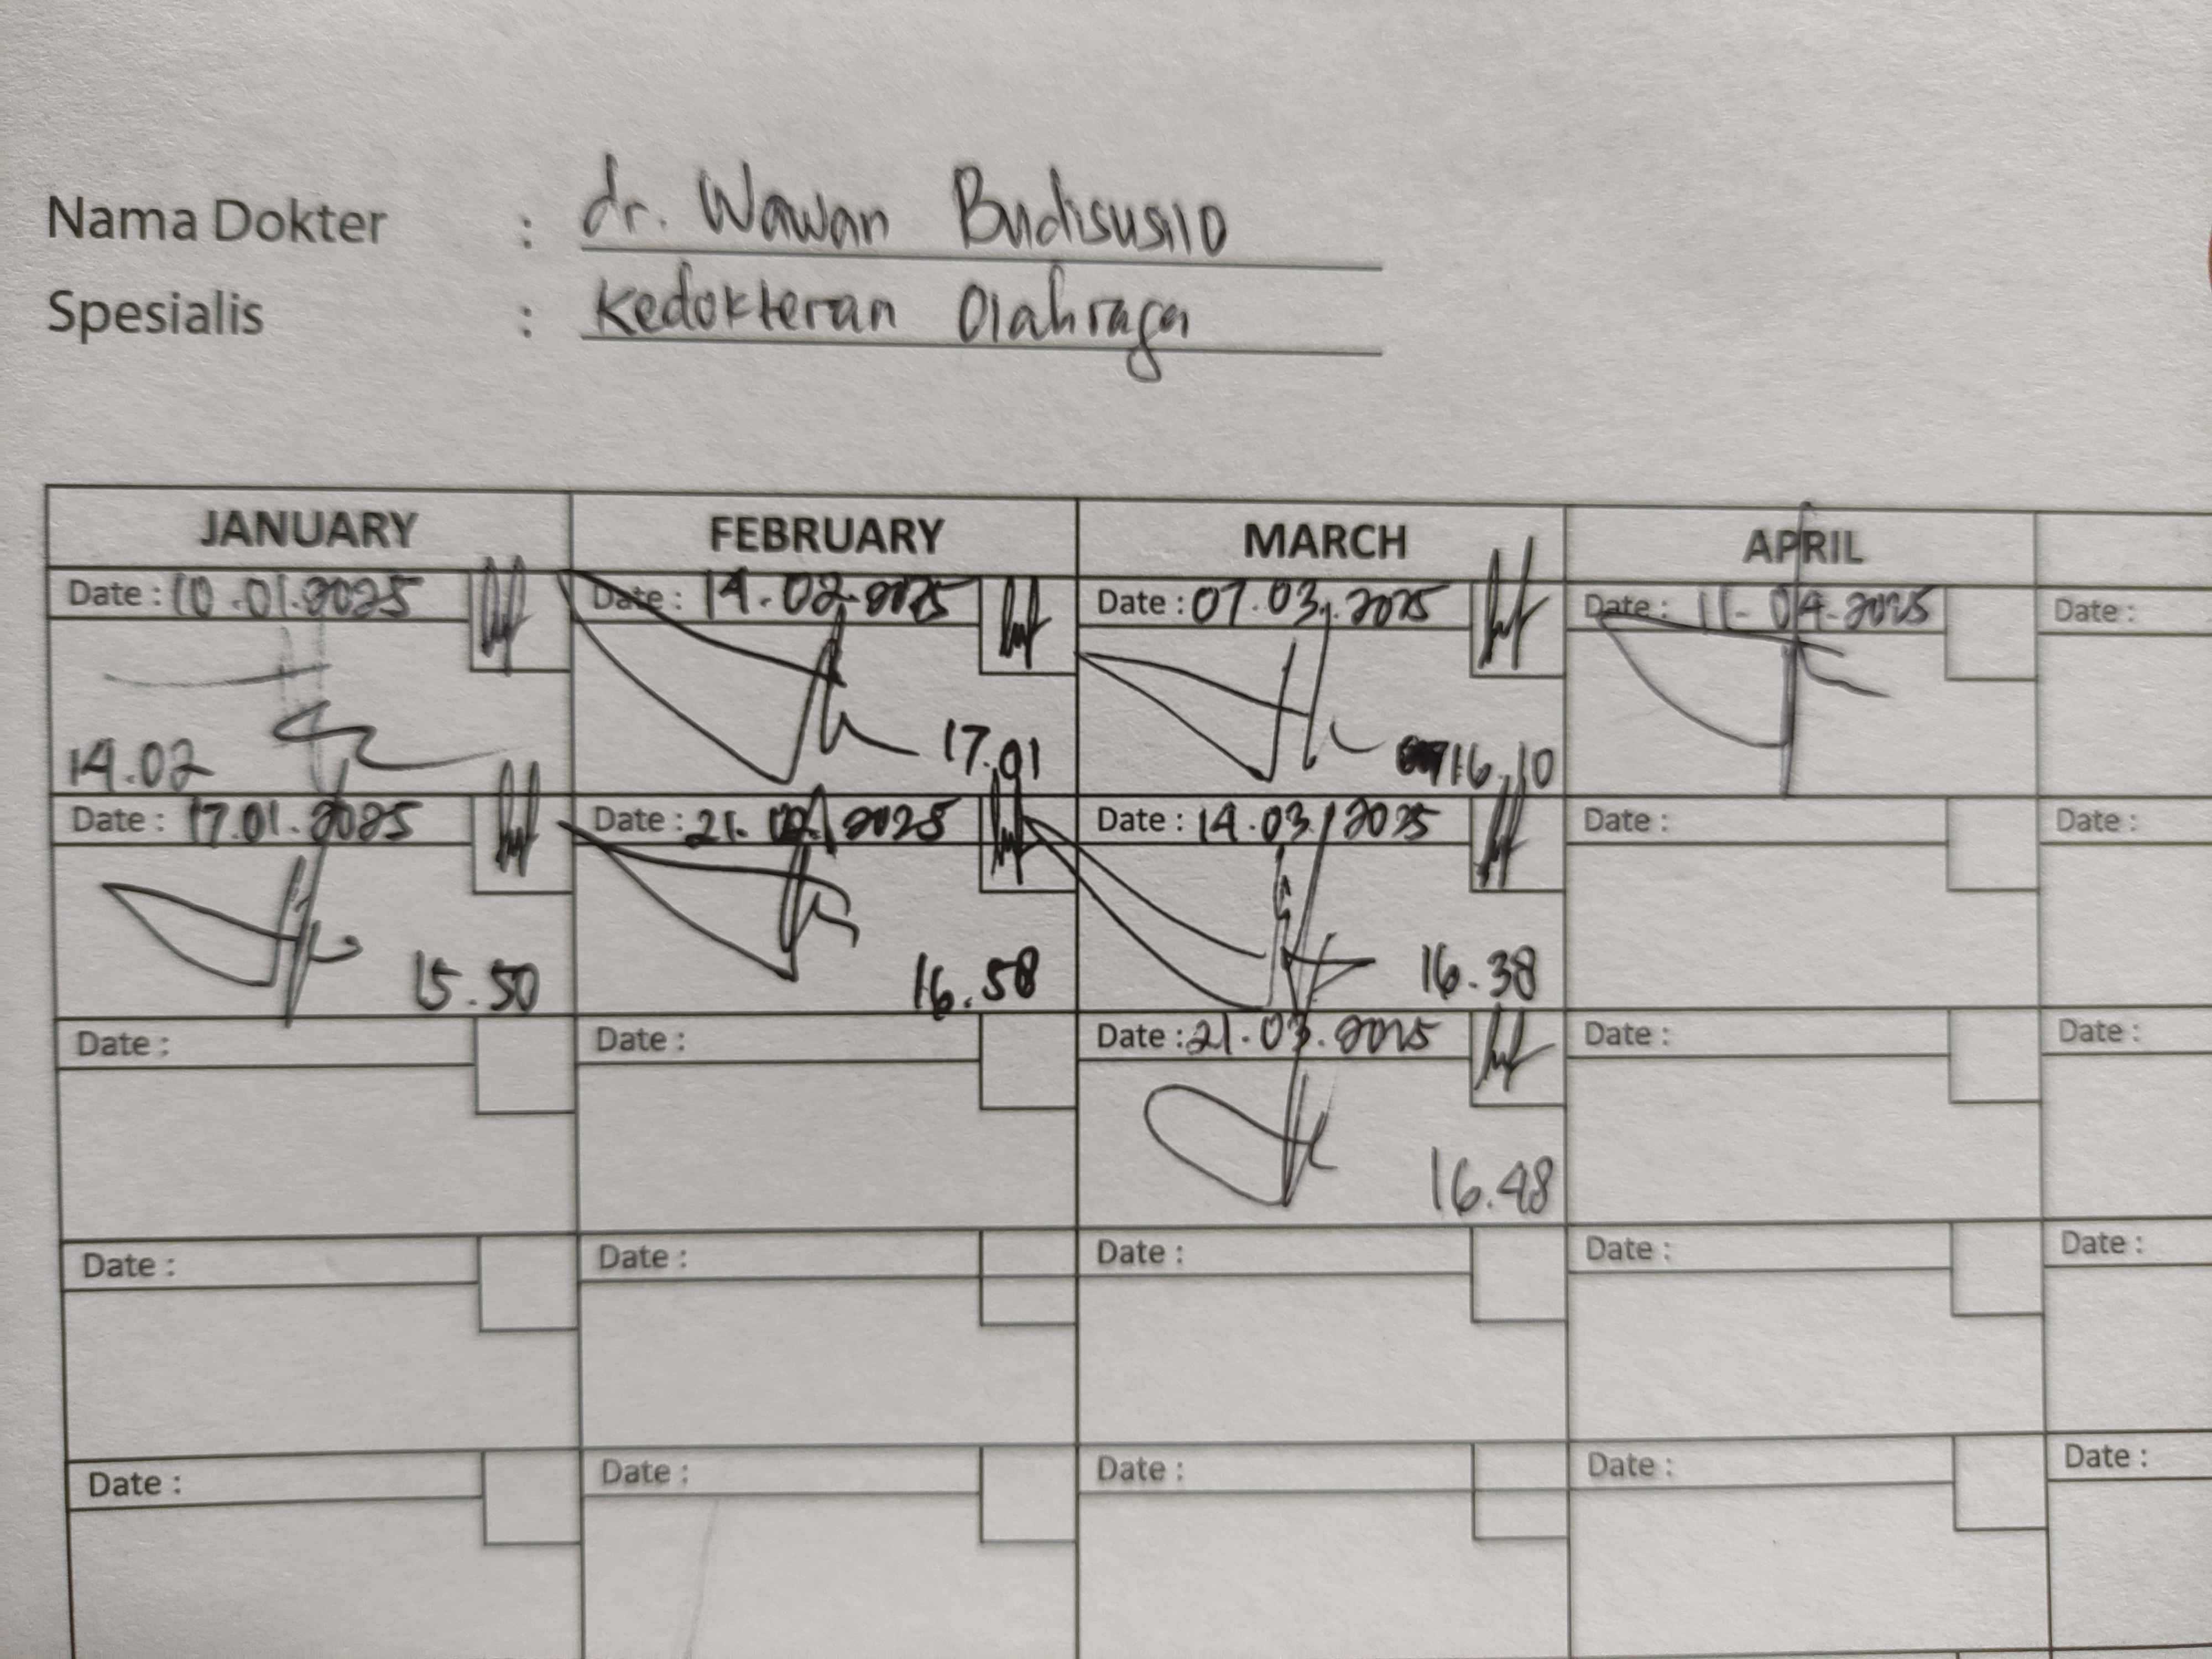 Nama Dokter : dr. Wawan Budisusilo
Spesialis : Kedokteran Olahraga
JANUARY FEBRUARY MARCH APRIL
Date : 10.01.2025 Date : 14.02.2025 Date : 07.03.2025 Date : 11-04-2025 Date :
14.02 17.01 16.10
Date : 17.01.2025 Date : 21.02.2025 Date : 14.03.2025 Date : Date :
15.50 16.58 16.38
Date : Date : Date : 21.03.2025 Date : Date :
16.48
Date : Date : Date : Date : Date :
Date : Date : Date : Date : Date :